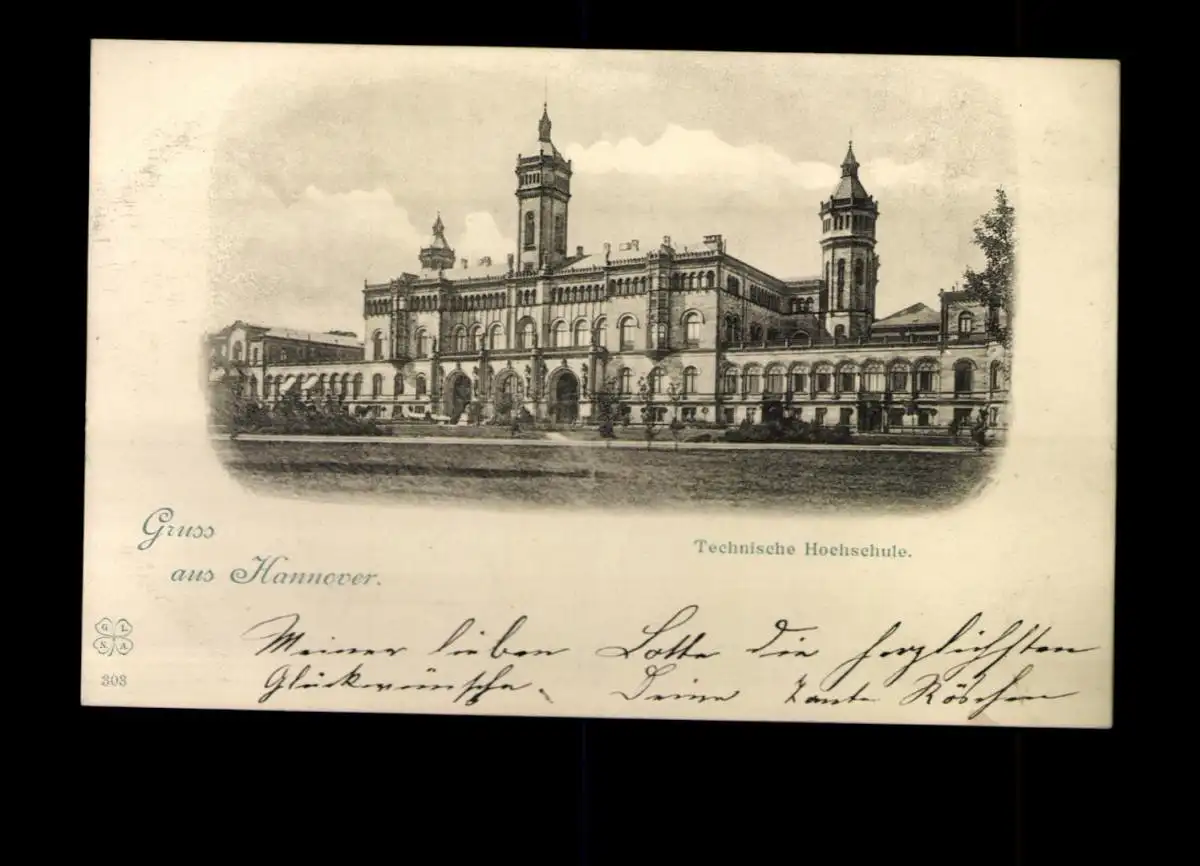 Gruss
aus Hannover.
Technische Hochschule.
G L
S. A.
303
Meiner lieben Lotte die herzlichsten
Glückwünsche. Deine Tante Röschen